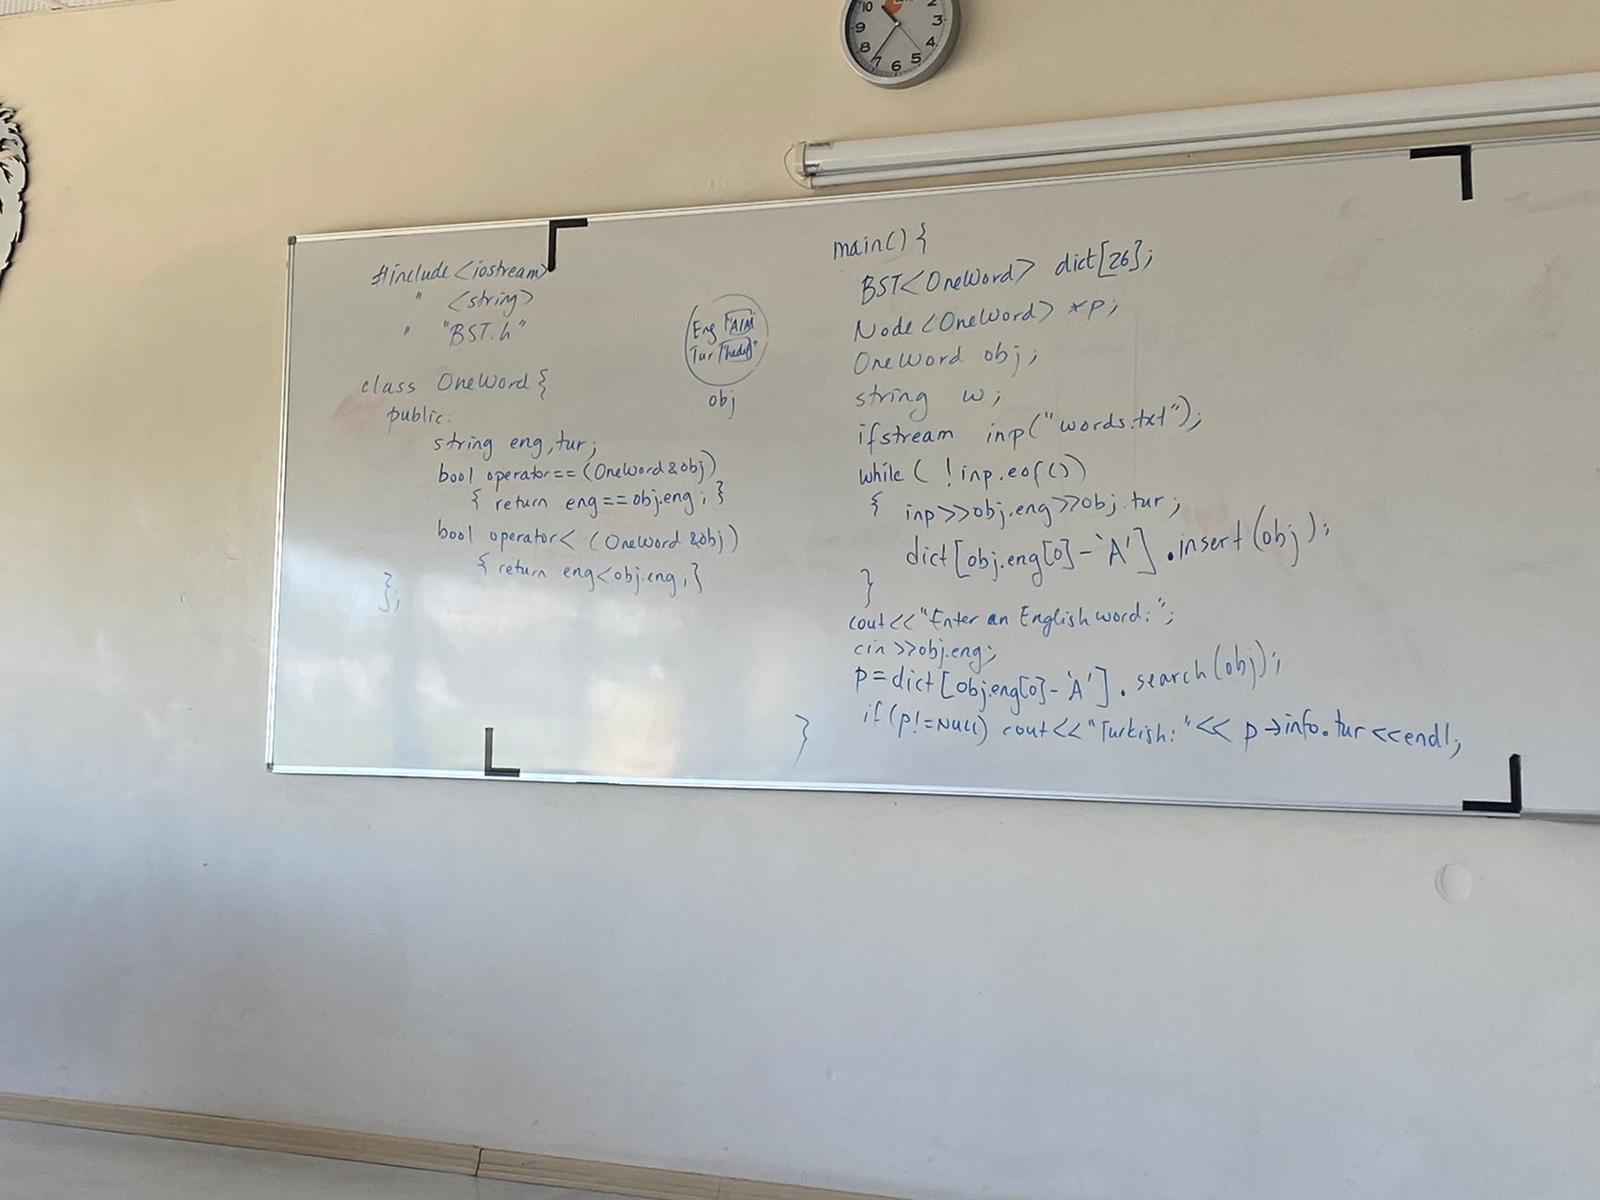 10 2
9 3
8 4
7 6 5
#include <iostream>
" <string>
" "BST.h"
class OneWord {
public:
string eng,tur;
bool operator==(OneWord &obj)
{ return eng==obj.eng; }
bool operator< (OneWord &obj)
{ return eng<obj.eng; }
};
Eng "AIM"
Tur "hedef"
obj
main() {
BST<OneWord> dict[26];
Node<OneWord> *p;
OneWord obj;
string w;
ifstream inp("words.txt");
while ( !inp.eof())
{ inp>>obj.eng>>obj.tur;
dict[obj.eng[0]-'A'].insert(obj);
}
cout<<"Enter an English word:";
cin>>obj.eng;
p=dict[obj.eng[0]-'A'].search(obj);
if(p!=NULL) cout<<"Turkish:"<< p->info.tur<<endl;
}